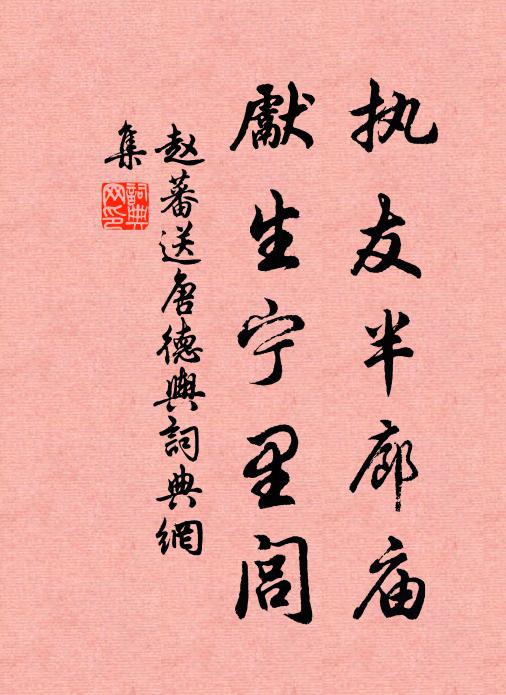 执友半廊庙
献生宁里闾
赵蕃送唐德舆词典網
集
詞典网印